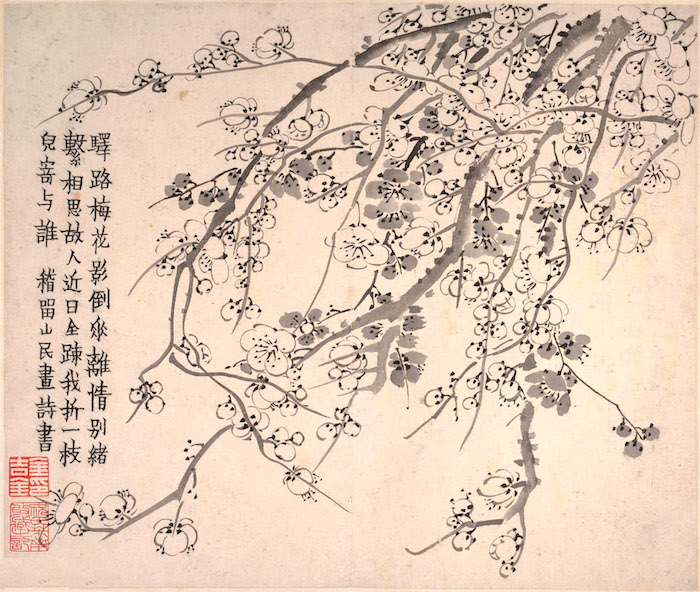 驛路梅花影倒垂離情别緒
繫相思故人近日全踈我折一枝
兒寄与誰 稽留山民畫詩書
金吉金印